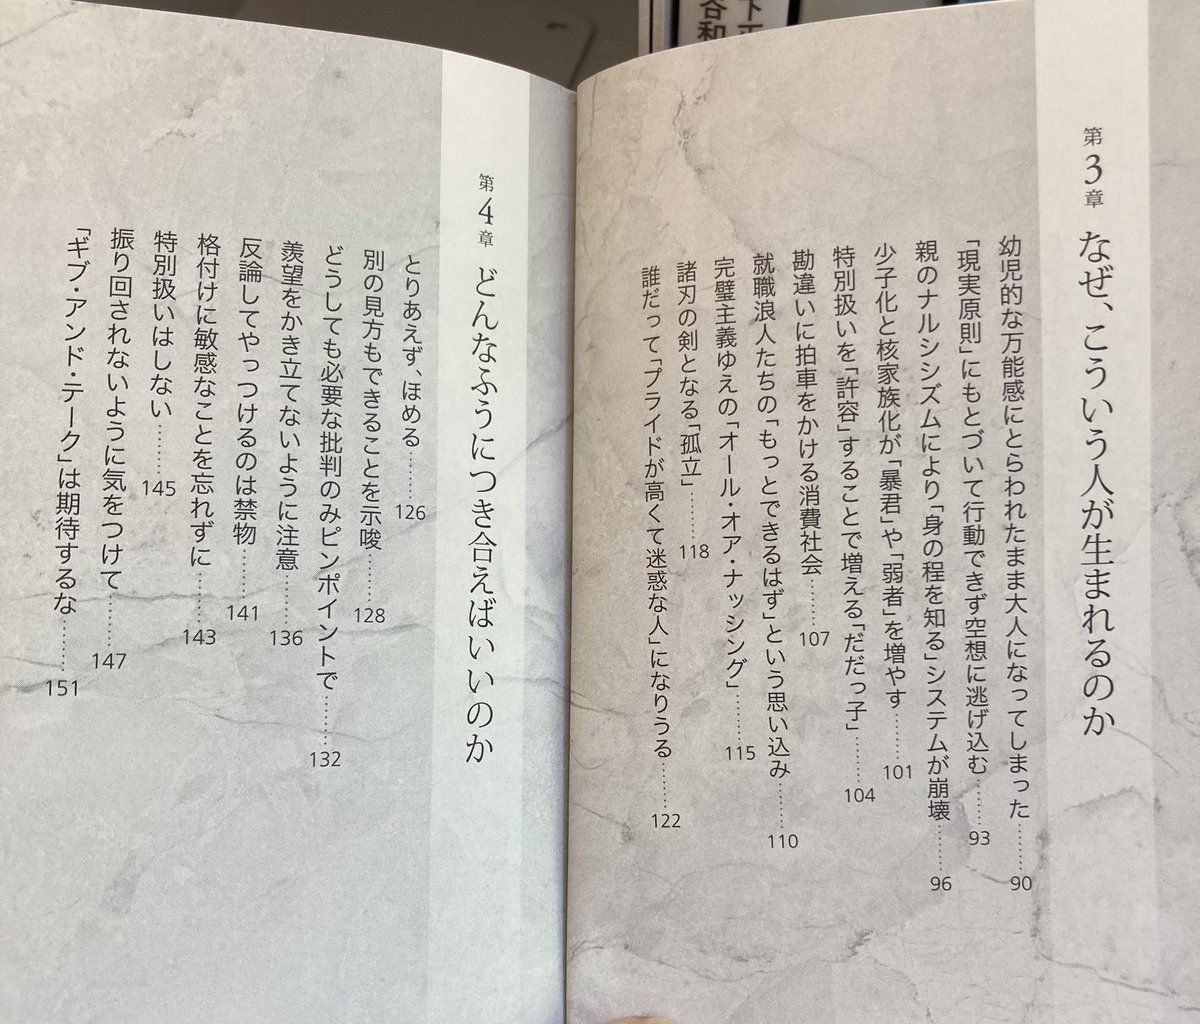 第3章 なぜ、こういう人が生まれるのか
幼児的な万能感にとらわれたまま大人になってしまった………90
「現実原則」にもとづいて行動できず空想に逃げ込む………93
親のナルシシズムにより「身の程を知る」システムが崩壊………96
少子化と核家族化が「暴君」や「弱者」を増やす………101
特別扱いを「許容」することで増える「だだっ子」………104
勘違いに拍車をかける消費社会………107
就職浪人たちの「もっとできるはず」という思い込み………110
完璧主義ゆえの「オール・オア・ナッシング」………115
諸刃の剣となる「孤立」………118
誰だって「プライドが高くて迷惑な人」になりうる………122
第4章 どんなふうにつき合えばいいのか
とりあえず、ほめる………126
別の見方もできることを示唆………128
どうしても必要な批判のみピンポイントで………132
羨望をかき立てないように注意………136
反論してやっつけるのは禁物………141
格付けに敏感なことを忘れずに………143
特別扱いはしない………145
振り回されないように気をつけて………147
「ギブ・アンド・テーク」は期待するな………151